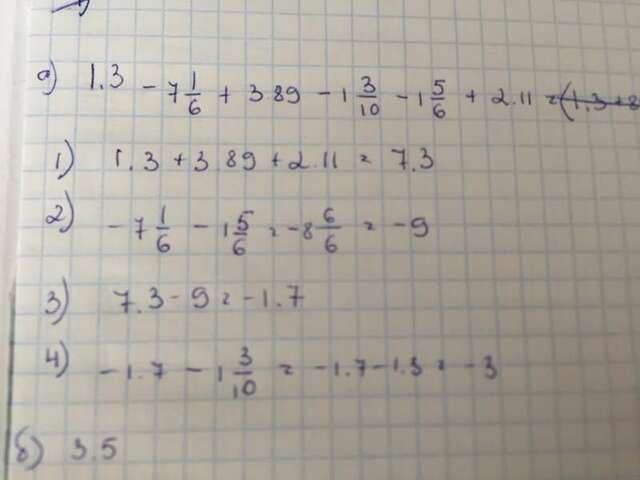 a) 1.3 - 7 1/6 + 3.89 - 1 3/10 - 1 5/6 + 2.11 = (1.3 +
1) 1.3 + 3.89 + 2.11 = 7.3
2) - 7 1/6 - 1 5/6 = - 8 6/6 = - 9
3) 7.3 - 9 = - 1.7
4) - 1.7 - 1 3/10 = - 1.7 - 1.3 = - 3
б) 3.5